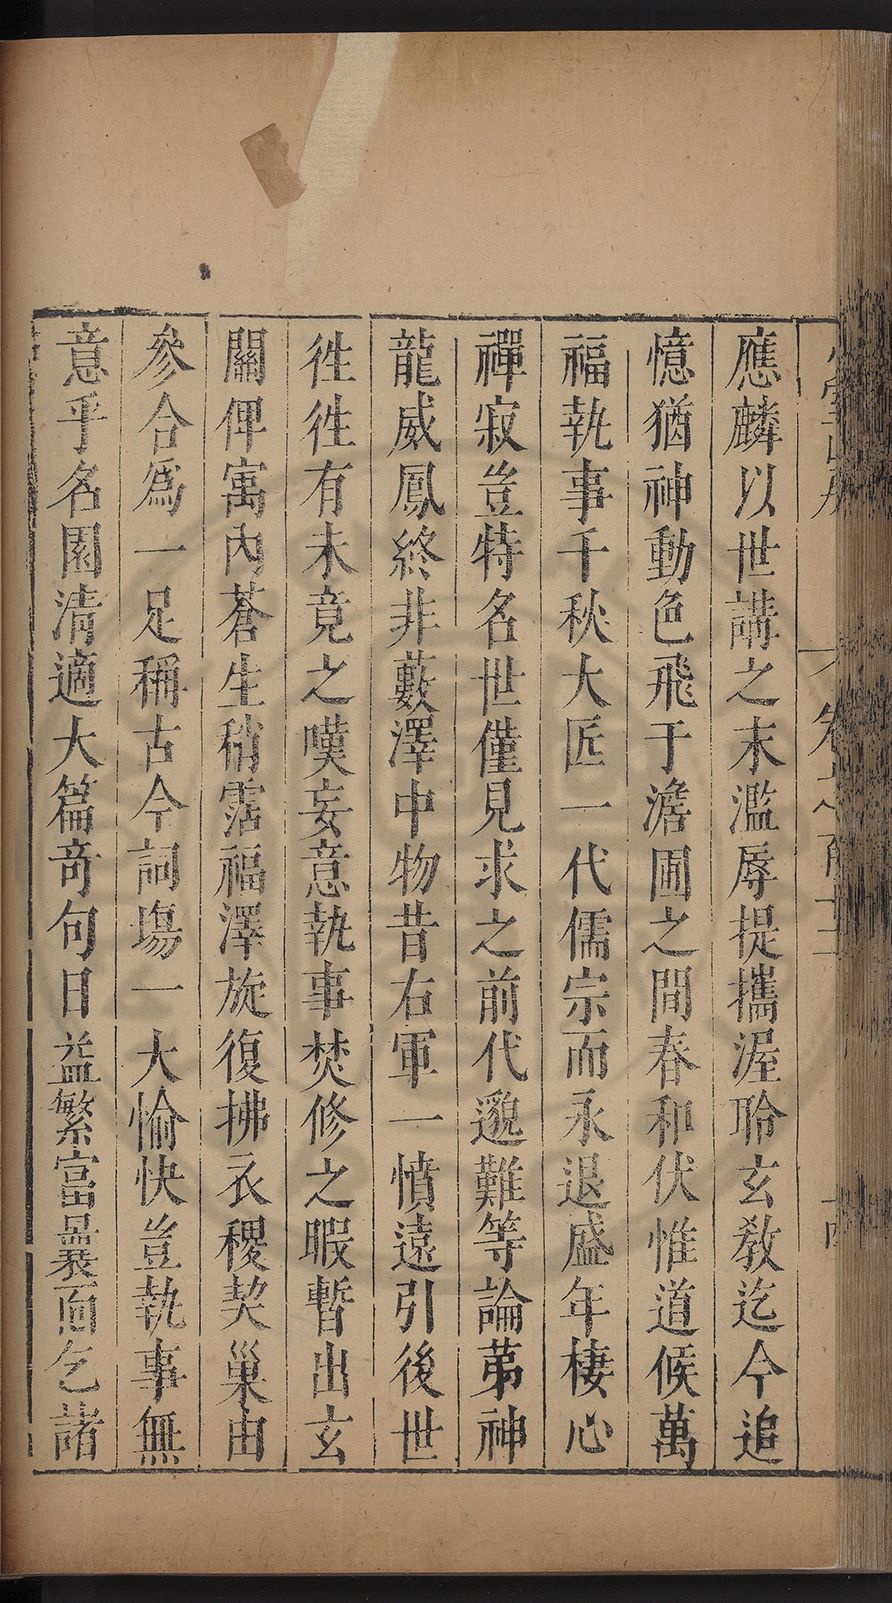 應麟以世講之末濫辱提攜渥聆玄教迄今追
憶猶神動色飛于澹圃之間春和伏惟道候萬
福執事千秋大匠一代儒宗而永退盛年棲心
禪寂豈特名世僅見求之前代邈難等論第神
龍威鳳終非藪澤中物昔右軍一憤遠引後世
徃徃有未竟之嘆妄意執事焚修之暇暫出玄
關俾寓內蒼生稍霑福澤旋復拂衣稷契巢由
參合爲一足稱古今詞塲一大愉快豈執事無
意乎名園清適大篇奇句日益繁富㬥面乞諸